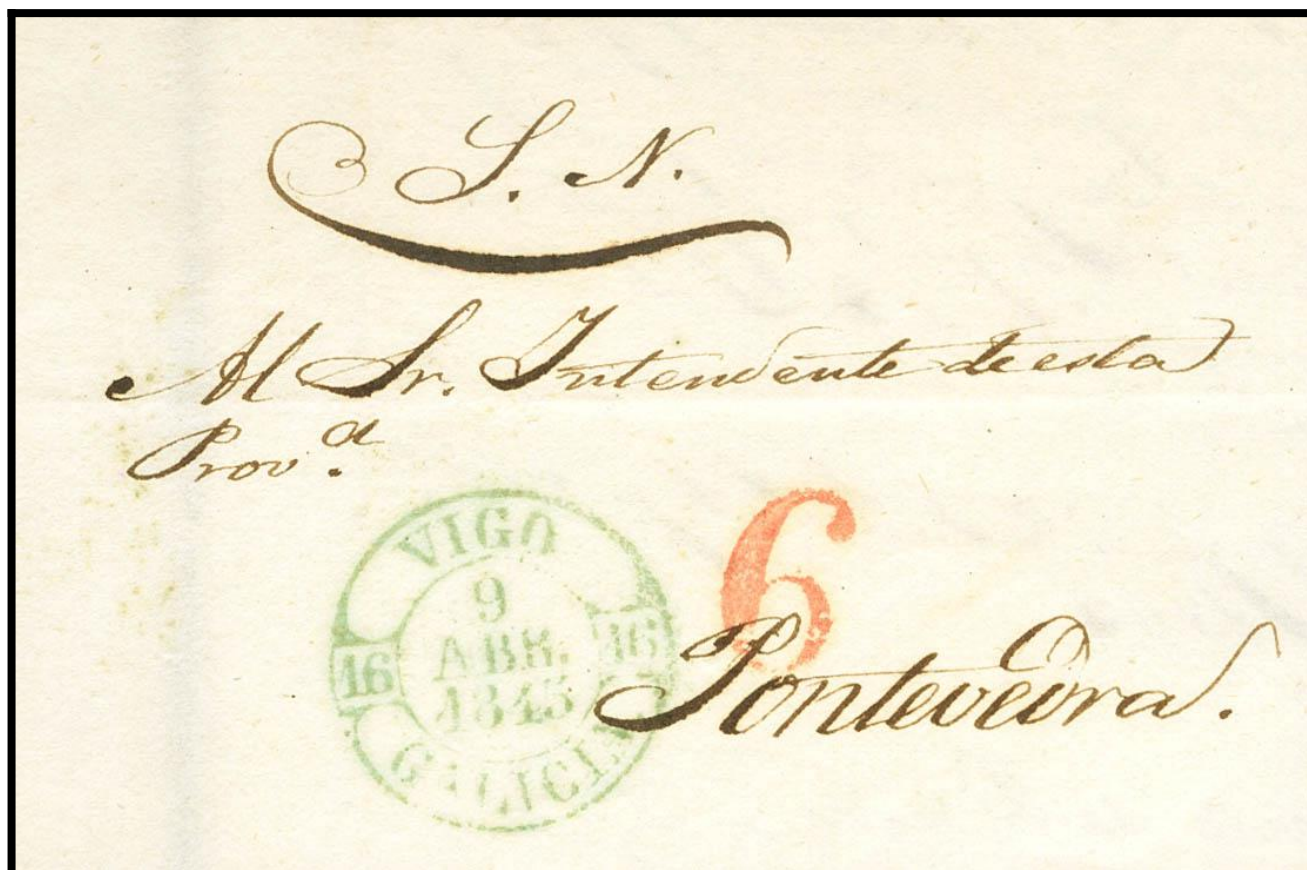 S. N.
Al Sr. Intendente de esta
Prov.a
VIGO
9
ABR.
1845
16
16
GALICIA
6
Pontevedra.